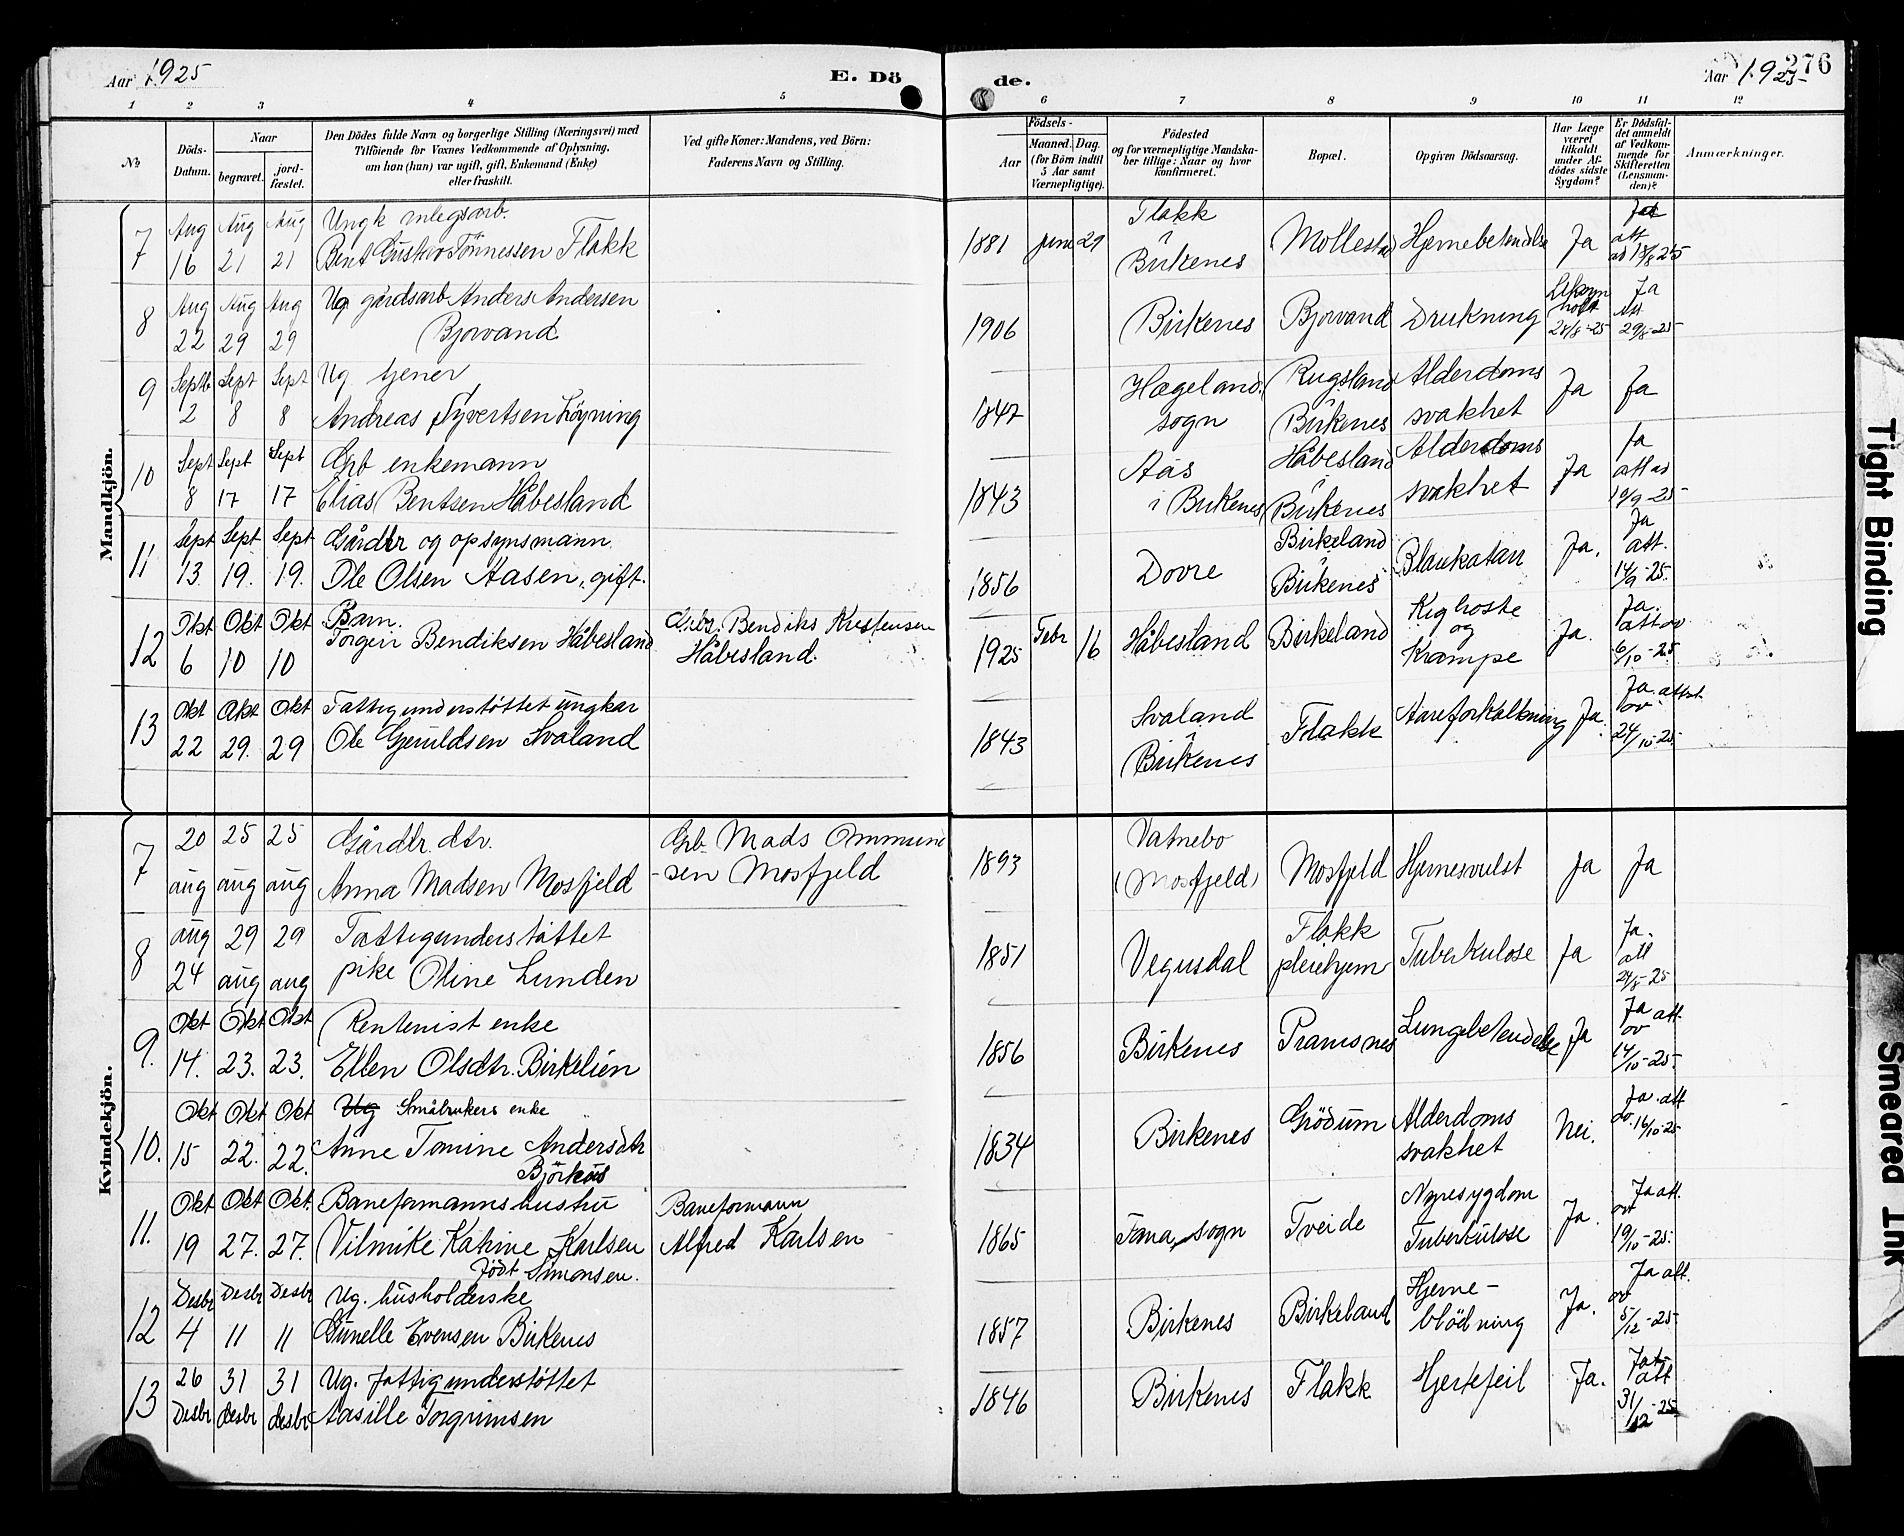 Aar 1925
E. Döde.
Aar 1925
276
1 2 3 4 5 6 7 8 9 10 11 12
№
Döds-Datum.
Naar
begravet.
jord-fæstet.
Den Dödes fulde Navn og borgerlige Stilling (Næringsvei) med
Tilföiende for Voxnes Vedkommende af Oplysning,
om han (hun) var ugift, gift, Enkemand (Enke)
eller fraskilt.
Ved gifte Koner: Mandens, ved Börn:
Faderens Navn og Stilling.
Födsels-
Aar
Maaned. Dag.
(for Börn indtil
5 Aar samt
Værnepligtige).
Födested
og for værnepligtige Mandska-
ber tillige: Naar og hvor
konfirmeret.
Bopæl.
Opgiven Dödsaarsag.
Har Læge
været
tilkaldt
under Af-
dödes sidste
Sygdom?
Er Dödsfal-
det anmeldt
af Vedkom-
mende for
Skifteretten
(Lensman-
den)?
Anmærkninger.
Mandkjön.
7 Aug 16 Aug 21 Aug 21
Ungk anlegsarb.
Bent Gustav Tönnessen Flakk
1881 juni 29 Flakk i Birkenes Mollestad Hjernebetendelse Ja Ja att av 18/8 25
8 Aug 22 Aug 29 Aug 29
Ug gårdsarb Anders Andersen
Bjorvand
1906 Birkenes Bjorvand Drukning 28/8-25 Ja att 29/8-25
9 Septb 2 Sept 8 Sept 8
Ug tjener
Andreas Syvertsen Löyning
1847 Hægeland sogn Rugsland Birkenes Alderdoms svakhet Ja Ja
10 Sept 8 Sept 17 Sept 17
Grb enkemann
Elias Bentsen Håbesland
1843 Aas i Birkenes Håbesland Birkenes Alderdoms svakhet Ja Ja att av 10/9-25
11 Sept 13. Sept 19. Sept 19.
Gårdbr og opsynsmann
Ole Olsen Aasen, gift.
1856 Dovre Birkeland Birkenes Blærekatarr Ja. Ja att. 14/9-25.
12 Okt 6 Okt 10 Okt 10
Barn.
Torgeir Bendiksen Håbesland
Grbr. Bendiks Kristensen
Håbesland.
1925 Febr 16 Håbesland Birkeland Kighoste og Krampe Ja. Ja. att av 6/10-25
13 Okt 22 Okt 29. Okt 29
Fattigunderstöttet ungkar
Ole Gjeruldsen Svaland
1843 Svaland i Birkenes Flakk Aareforkalkning Ja. Ja. attest ov 24/10-25.
Kvindekjön.
7 20 aug 25 aug 25 aug
Gårdbr. dtr.
Anna Madsen Mosfjeld
Grb. Mads Ommund
-sen Mosfjeld
1893 Vatnebo (Mosfjeld) Mosfjeld Hjernesvulst Ja Ja
8 aug 24 29 aug 29 aug
Fattigunderstöttet
pike Oline Lunden
1851 Vegusdal Flakk pleiehjem Tuberkulose Ja Ja. att 29/8-25
9. Okt 14. Okt 23. Okt 23.
Rentenist enke
Ellen Olsdtr. Birkelien
1856 Birkenes Pramsnes Lungebetendelse Ja Ja att. ov 14/10-25.
10. Okt 15 Okt 22. Okt 22.
Ug Småbrukers enke
Anne Tomine Andersdtr
Björkås
1834 Birkenes Grödum Alderdoms svakhet Nei. Ja. att ov. 16/10-25
11. Okt 19 Okt 27. Okt 27.
Baneformanns hustru
Vilmike Katrine Karlsen
födt Simonsen.
Baneformann
Alfred Karlsen
1865 Fana sogn Tveide Nyresygdom Tuberkulose Ja. Ja att. ov 19/10-25.
12 Desbr 4 Desbr 11 Desbr 11
Ug. husholderske
Gunelle Evensen Birkenes
1857 Birkenes Birkeland Hjerne-blödning Ja. Ja att. ov 5/12-25.
13 26 Desbr 31 desbr 31 desbr
Ug. fattigunderstöttet
Aasille Torgrimsen
1846 Birkenes Flakk Hjertefeil Ja. Ja att 31/12-25
Tight Binding
Smeared Ink